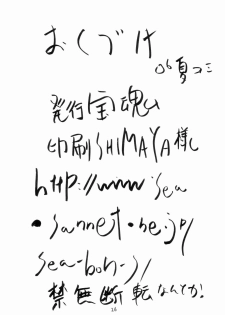 おくづけ
06夏コミ
発行 宝魂
印刷 SHIMAYA様
http://www.sea
・sannet・ne.jp/
sea-bon-s/
禁無断転なんてか!
16